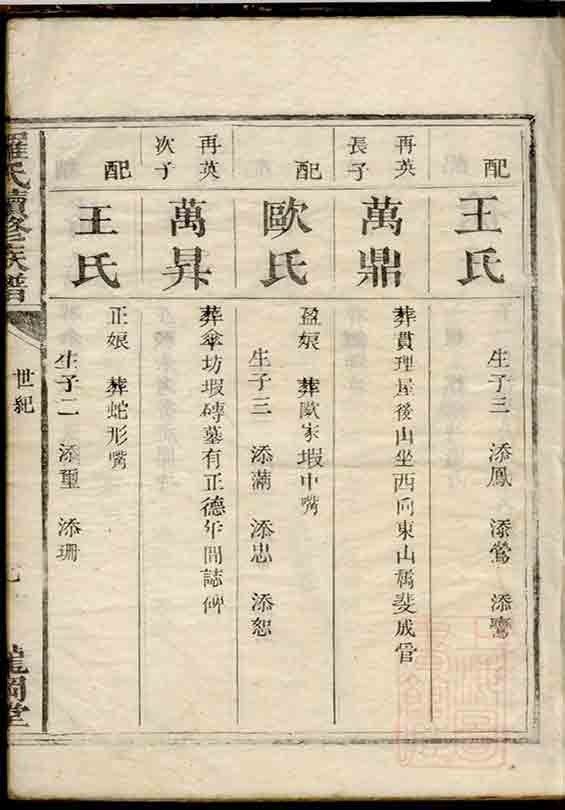 配
王氏
生子三 添鳳 添鶯 添鸞
再英
長子
萬鼎
葬貫理屋後山坐西向東山橋斐成管
配
歐氏
盈娘 葬歐家塅中嘴
生子三 添滿 添忠 添恕
再英
次子
萬昇
葬傘坊塅磚墓有正德年間誌碑
配
王氏
正娘 葬蛇形嘴
生子二 添璽 添珊
羅氏續修族譜
世紀
龍岡堂